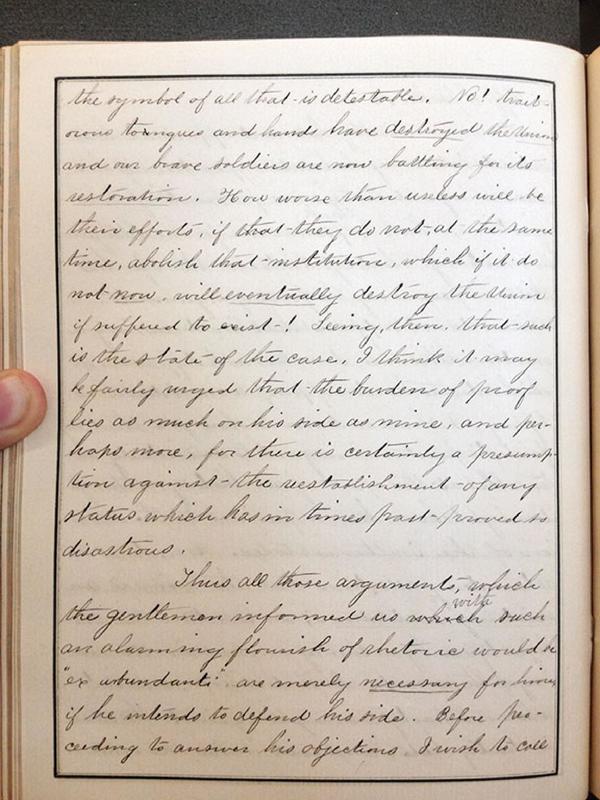 the symbol of all that is detestable. No! trait-
orous toungues and hands have destroyed the Union
and our brave soldiers are now battling for its
restoration. How worse than useless will be
their efforts, if that they do not, at the same
time, abolish that institution, which if it do
not now, will eventually destroy the Union
if suffered to exist! Seeing, then, that such
is the state of the case, I think it may
be fairly urged that the burden of proof
lies as much on his side as mine, and per-
haps more, for there is certainly a presump-
tion against the reestablishment of any
status which has in times past proved so
disastrous.
Thus all those argument, which
the gentlemen informed us which with such
an alarming flourish of rhetoric would be
"ex abundanti" are merely necessary for him,
if he intends to defend his side. Before pro-
ceeding to answer his objections I wish to call